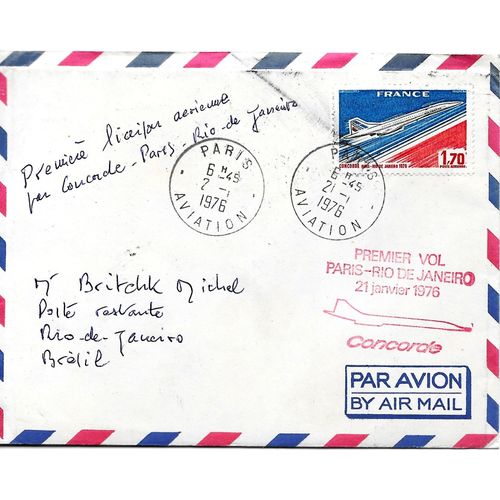 Première liaison aérienne
par Concorde - Paris - Rio-de-Janeiro
PARIS
6 H 45
2 - 1
1976
AVIATION
PARIS
6 H 45
21 - 1
1976
AVIATION
FRANCE
CONCORDE PARIS-RIO DE JANEIRO 1976
1,70
POSTE AERIENNE
PREMIER VOL
PARIS-RIO DE JANEIRO
21 janvier 1976
Concorde
Mr Britchk Michel
Poste restante
Rio-de-Janeiro
Brésil
PAR AVION
BY AIR MAIL